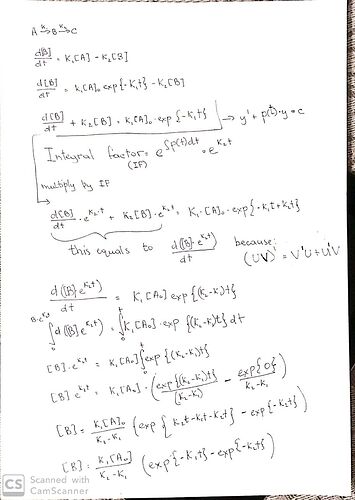 A →K₁ B →K₂ C
d[B]/dt = K₁[A] - K₂[B]
d[B]/dt = K₁[A]₀ exp{-K₁t} - K₂[B]
d[B]/dt + K₂[B] = K₁[A]₀ · exp{-K₁t} → y' + p(t)·y = c
Integral factor = e^∫p(t)dt = e^K₂t
(IF)
multiply by IF
d[B]/dt · e^K₂t + K₂[B]·e^K₂t = K₁·[A]₀·exp{-K₁t+K₂t}
this equals to d([B]·e^K₂t)/dt because:
(UV)' = V'U + U'V
d([B]·e^K₂t)/dt = K₁[A₀] exp{(K₂-K₁)t}
∫₀^B·e^K₂t d([B]e^K₂t) = ∫₀^t K₁[A₀]·exp{(K₂-K₁)t}dt
[B]·e^K₂t = K₁[A₀]∫₀^t exp{(K₂-K₁)t}
[B] e^K₂t = K₁[A₀]·(exp{(K₂-K₁)t}/(K₂-K₁) - exp{0}/K₂-K₁)
[B] = K₁[A]₀/K₂-K₁ (exp{K₂t-K₁t-K₂t} - exp{-K₂t})
[B] = K₁[A₀]/K₂-K₁ (exp{-K₁t} - exp{-K₂t})
CS Scanned with
CamScanner